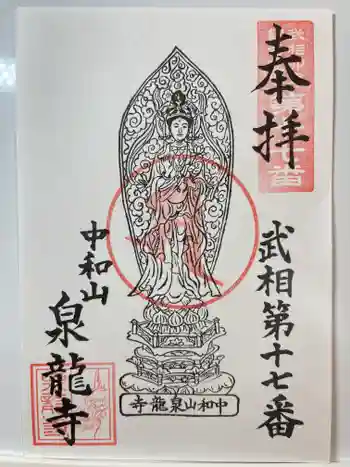 奉拝
武相第十七番
中和山
泉龍寺
寺龍泉山和中